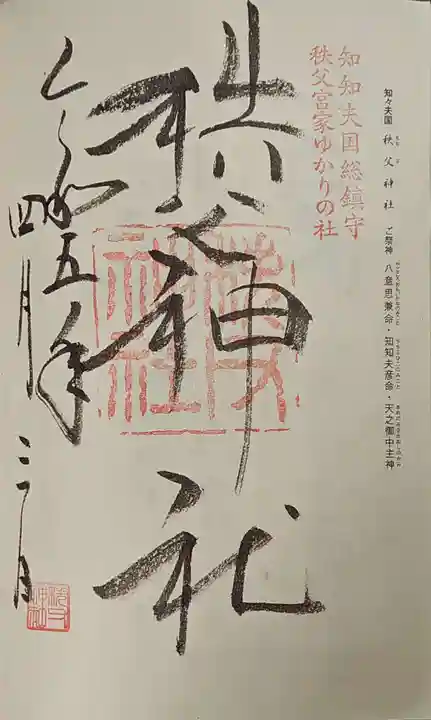 知々夫国 秩父神社 ご祭神 八意思兼命・知知夫彦命・天之御中主神
知知夫国総鎮守
秩父宮家ゆかりの社
秩父神社
令和五年
四月三日
秩父神社